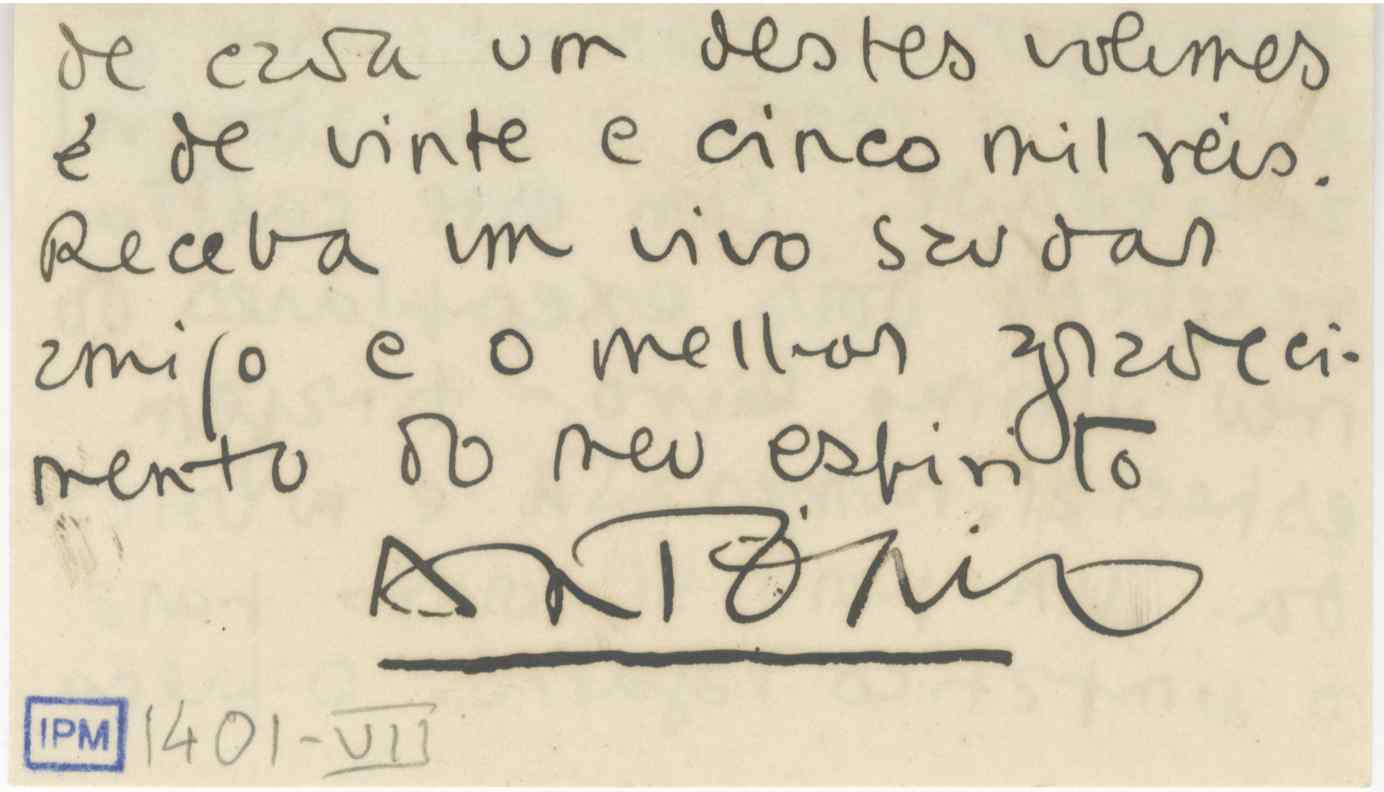 de cada um destes volumes
é de vinte e cinco mil réis.
Receba um vivo saudar
amigo e o melhor agradeci-
mento do meu espirito
ANTÓNIO
IPM 1401-VII